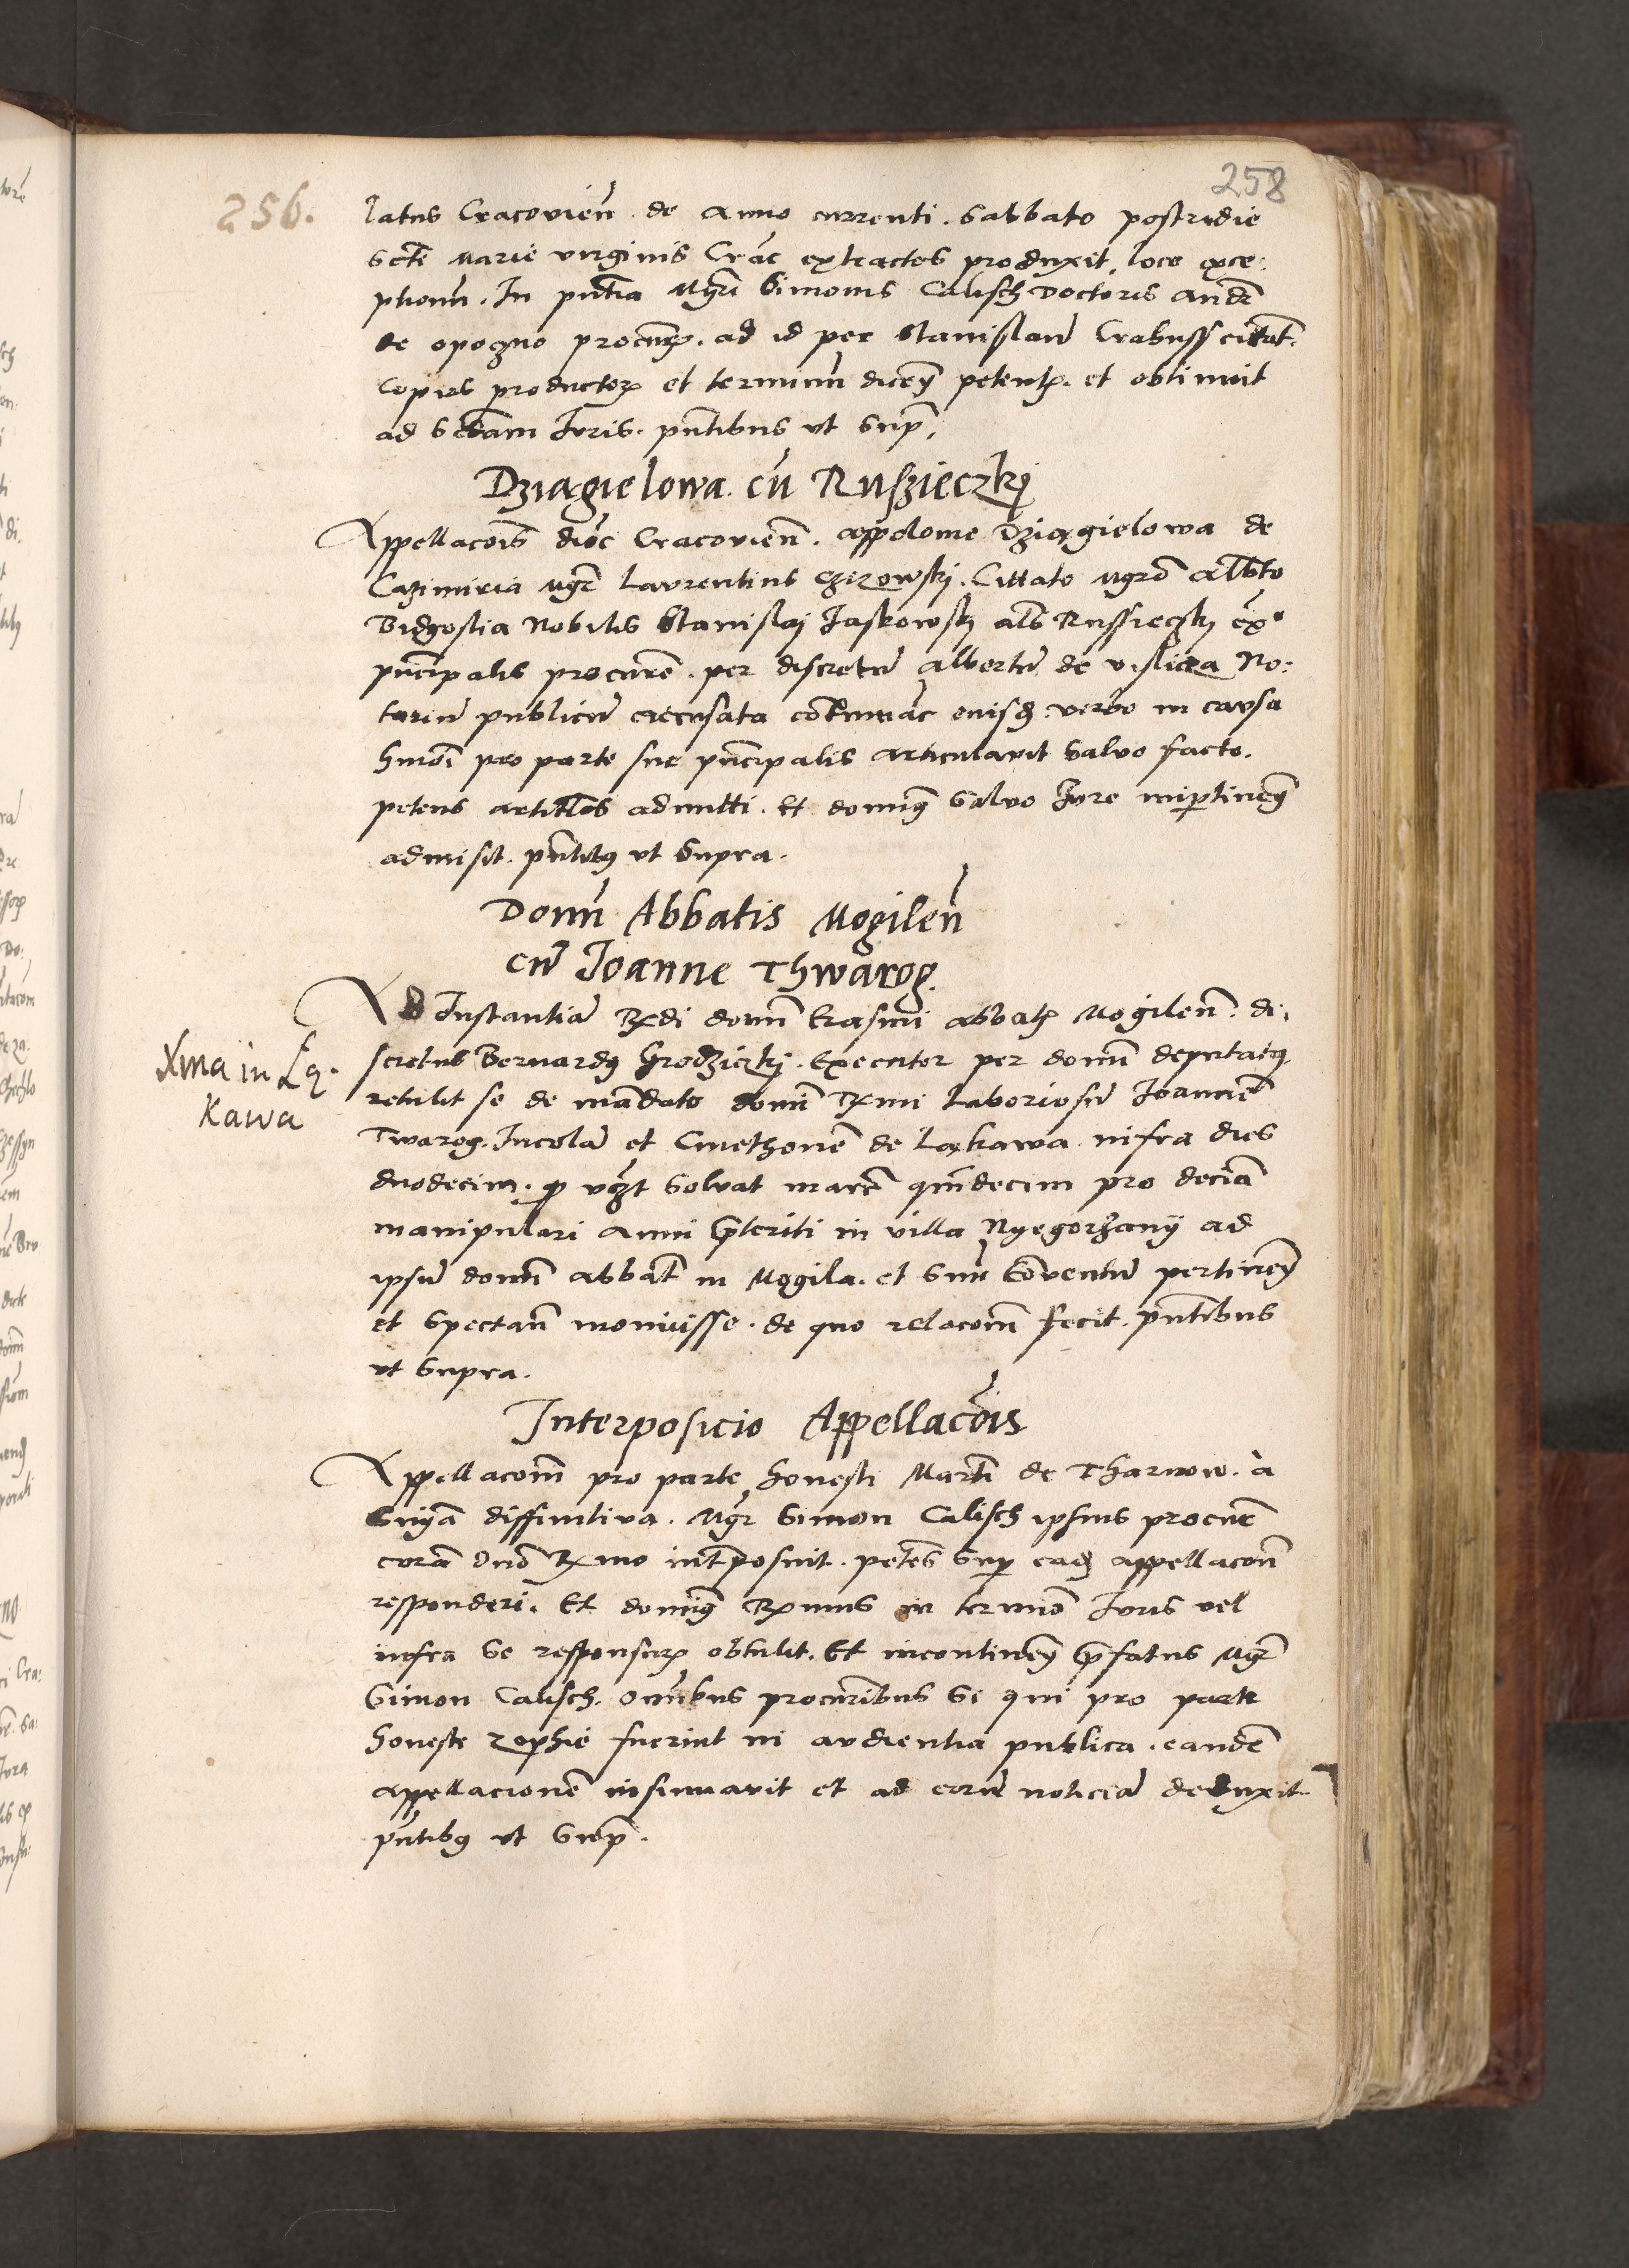 258
256.
latus Cracovien̄. de Anno currenti. Sabbato postridie
scte Marie virginis Crac̄ extractos produxit, loco exce:
ptionu̅. In pn̄tia Mgr̄i Simonis Calisch Doctoris Andr̄
de opoczno procur̄. ad id per Stanislau̅ Crabuss citat̄.
Copias productoꝝ et terminu̅ dicen̄ petent̄. et obtinuit
ad Sc̄dam Juris. pn̄tibus vt Supr̄.
Dziągielowa. cu̅ Ruszieczkj
Appellac̄ois dioc̄ Cracovien̄. Appolonie Dziągielowa de
Cazimiria Mgr̄ Laurentius Czizowskj. Cittato Mgr̄o Alb̄to
Bidgostia Nobilis Stanislaj Jaskowskj al̄s Russieczkj ex
pn̄cipalis procur̄e. per discretu̅ Albertu̅ de vislicza No:
tariu̅ publicu̅ accusata contumac̄ eiusd̄. verbo in causa
hmōi pro parte sue pn̄cipalis articulavit Salvo facto.
petens artic̄los admitti. Et dominꝯ Salvo Jure impertinen̄
admisit. pn̄tibꝯ vt Supra.
Domn̄ Abbatis Mogilen̄
cu̅ Joanne Thwarog.
Ad Instantia̅ Rx̄di domn̄ Erasmi abbatꝭ Mogilen̄. di.
Xma in Lą.
kawa
scretus Bernardꝯ Grodziczkj. Executor per domn̄ deputatꝯ
retulit se de mandato domn̄ Rx̄mi Laboriosu̅ Joanne̅
Twarog. Incola̅ et Cmethone̅ de Ląkawa infra dies
duodecim. ꝙ vczt solvat marc̄ quindecim pro decia̅
manipulari anni p̄teriti in villa Nyegorzanÿ ad
ipsu̅ domn̄ abbat̄ in Mogila. et Suu̅ Conventu̅ pertinen̄
et Spectan̄ monuisse. de quo relacom̄ fecit. pn̄tibus
vt Supra.
Interposicio Appellac̄ois
Appellacom̄ pro parte honesti Martī de Tharnow. à
Sn̄ia diffinitiva. Mgr̄ Simon Calisch ipsius procur̄
cora̅ Dn̄o Rx̄mo int̄posuit. petes Supꝑ ead̄ appellacom̄
responderi. Et dominꝯ Rx̄mus in termio̅ Juris vel
infra Se responsuꝝ obtulit. Et incontinen̄ p̄fatus Mgr̄
Simon Calisch. Omn̄ibus procur̄ibus Si qui pro parte
honeste zophie fuerint in audientia publica. eande̅
appellacione̅ insinuavit et ad eoru̅ noticia̅ deduxit
pn̄tibꝯ vt Supr̄.